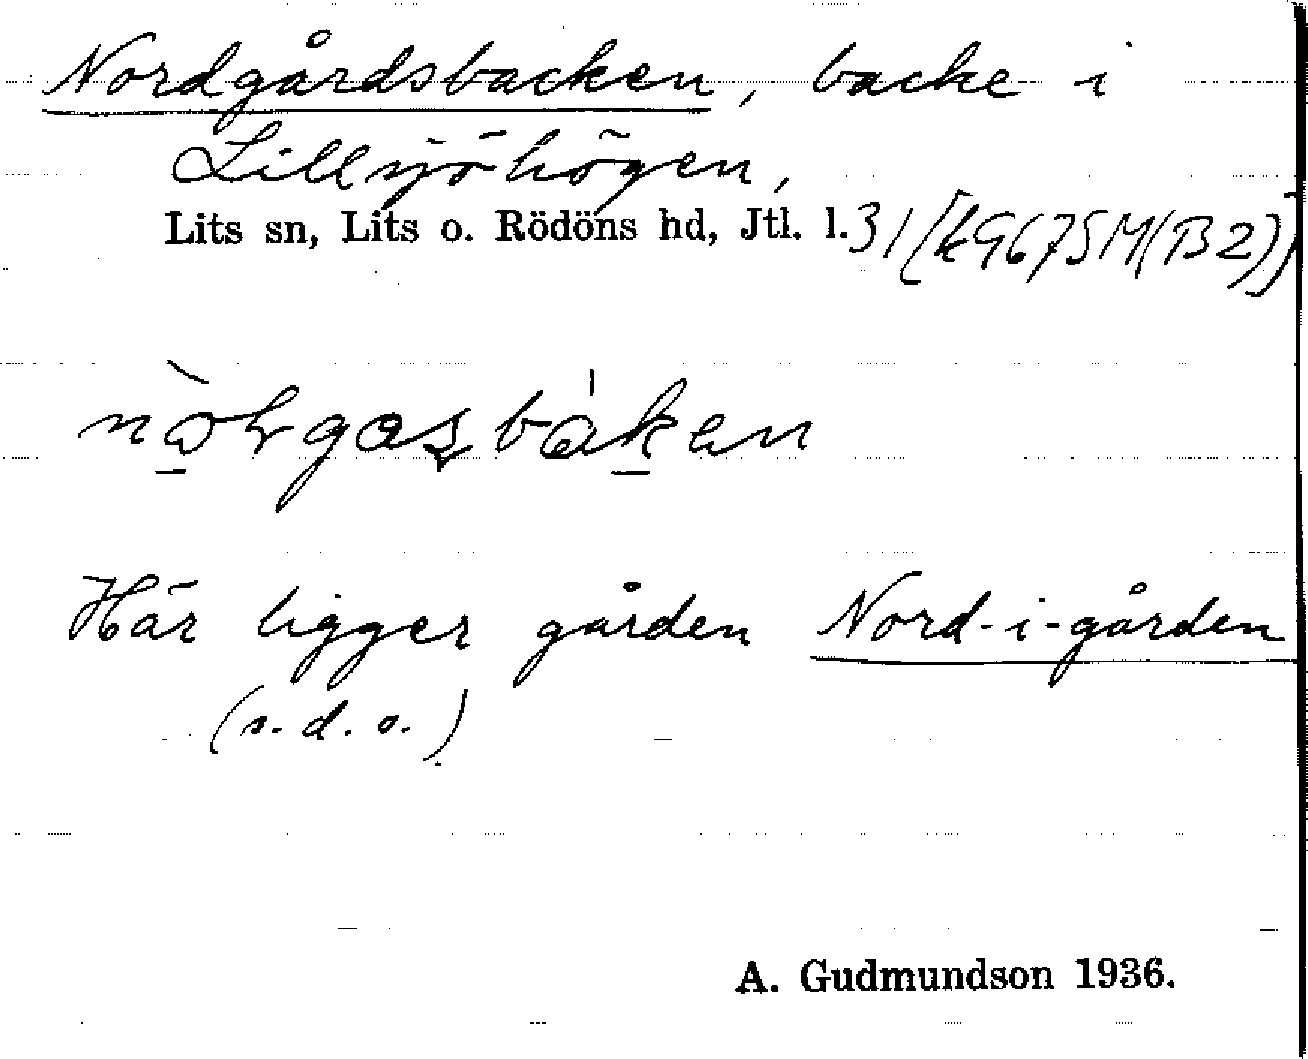 Nordgårdsbacken, backe i
Lillsjöhögen,
Lits sn, Lits o. Rödöns hd, Jtl. l. 31
Här ligger gården Nord-i-gården
(s.d.o.)
A. Gudmundson 1936.